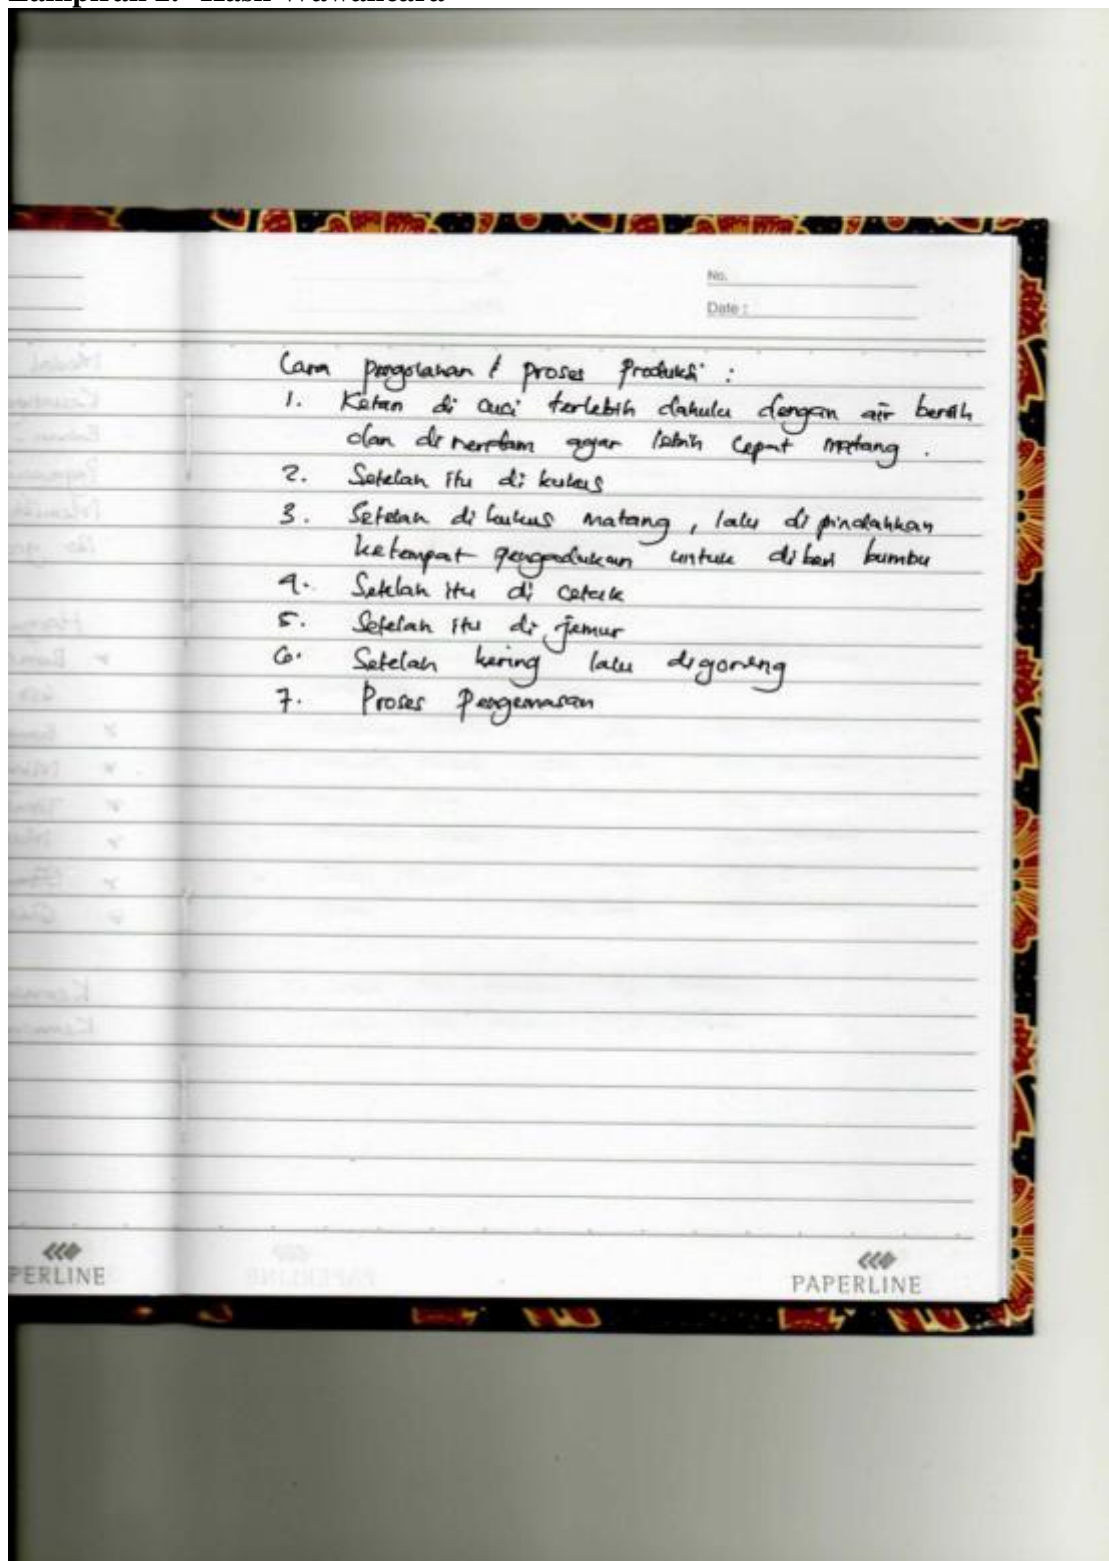 No.
Date :
Cara pengolahan / proses Produksi :
1. Ketan di cuci terlebih dahulu dengan air bersih
dan di rendam agar lebih cepat matang .
2. Setelah itu di kukus
3. Setelah di kukus matang , lalu di pindahkan
ketempat pengadukan untuk di beri bumbu
4. Setelah itu di cetak
5. Setelah itu di jemur
6. Setelah kering lalu digoreng
7. Proses Pengemasan
PERLINE
PAPERLINE